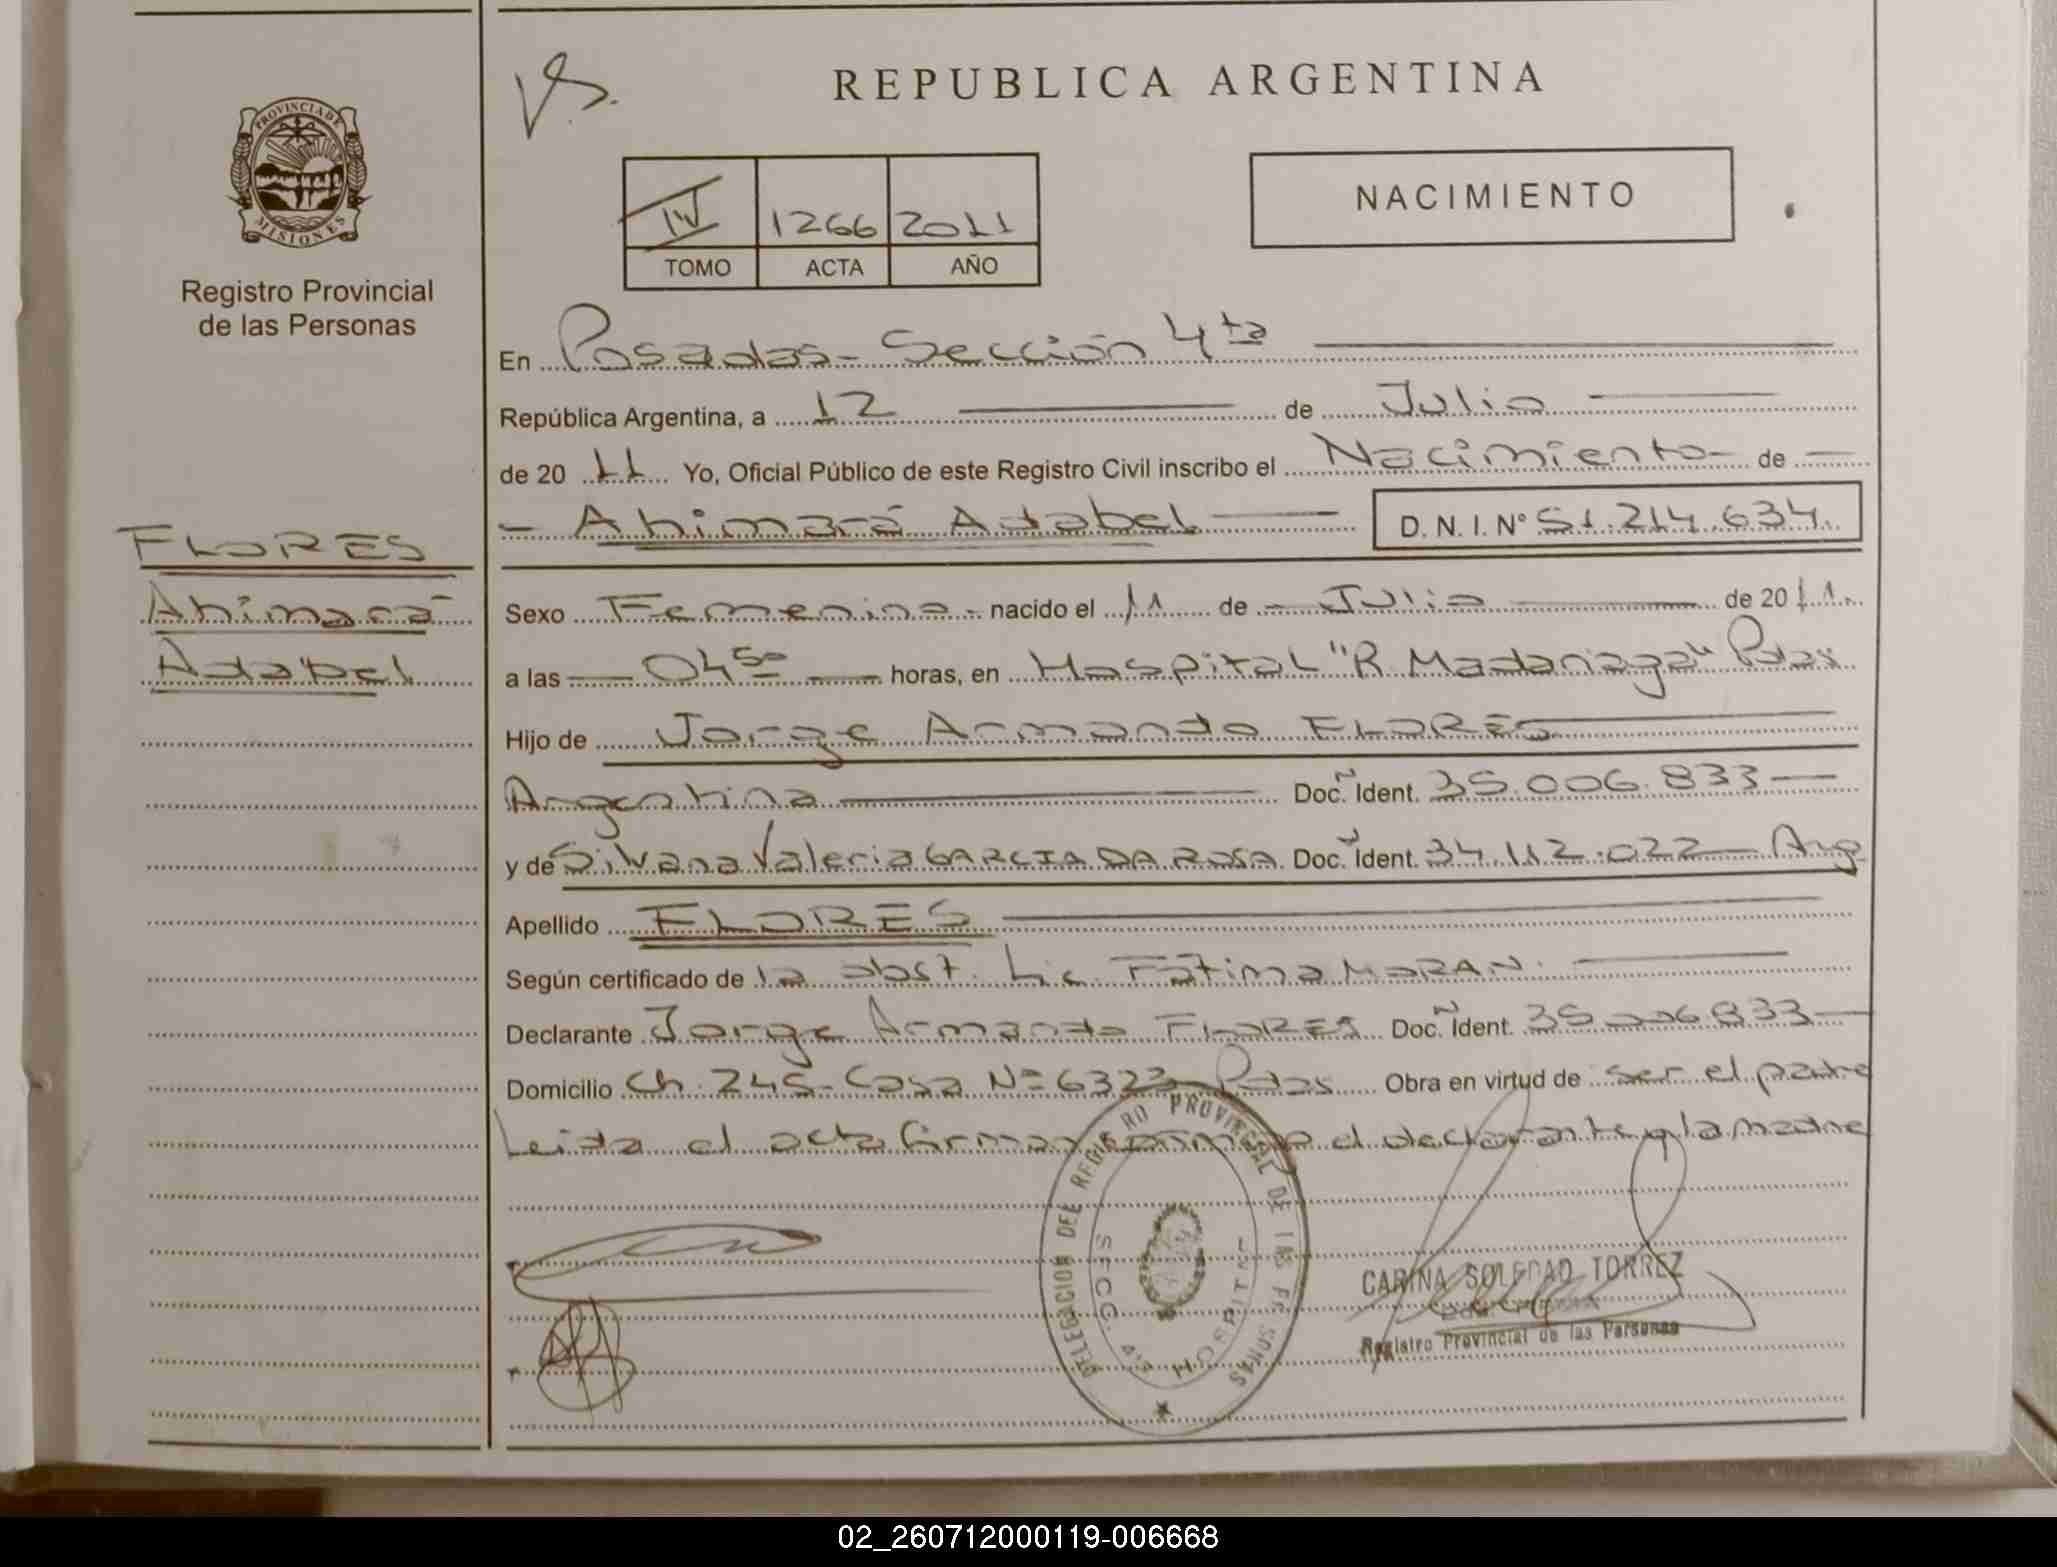 REPUBLICA ARGENTINA
PROVINCIA DE
MISIONES
Registro Provincial
de las Personas
NACIMIENTO
IV 1266 2011
TOMO ACTA AÑO
En Posadas - Sección 4ta
República Argentina, a 12 de Julio
de 2011 Yo, Oficial Público de este Registro Civil inscribo el Nacimiento de
- Ahimará Adabel D. N. I. N° 51.214.634.
FLORES
Ahimará
Adabel
Sexo Femenino - nacido el 11 de - Julio de 2011.
a las 04 50 horas, en Hospital "R. Madariaga" Pdas
Hijo de Jorge Armando FLORES
Argentina Doc. Ident. 35.006.833
y de Silvana Valeria GARCIA DA ROSA Doc. Ident. 34.112.022 - Arg
Apellido FLORES
Según certificado de la obst. Lic Fatima MORAN.
Declarante Jorge Armando FLORES Doc. Ident. 35.006.833
Domicilio Ch. 245 - Casa N° 6323 - Pdas Obra en virtud de ser el padre
Leida el acta firman el declarante y la madre
DELEGACION DEL REGISTRO PROVINCIAL DE LAS PERSONAS
SECC. 4ta HOSPITAL
CARINA SOLEDAD TORREZ
Registro Provincial de las Personas
02_260712000119-006668